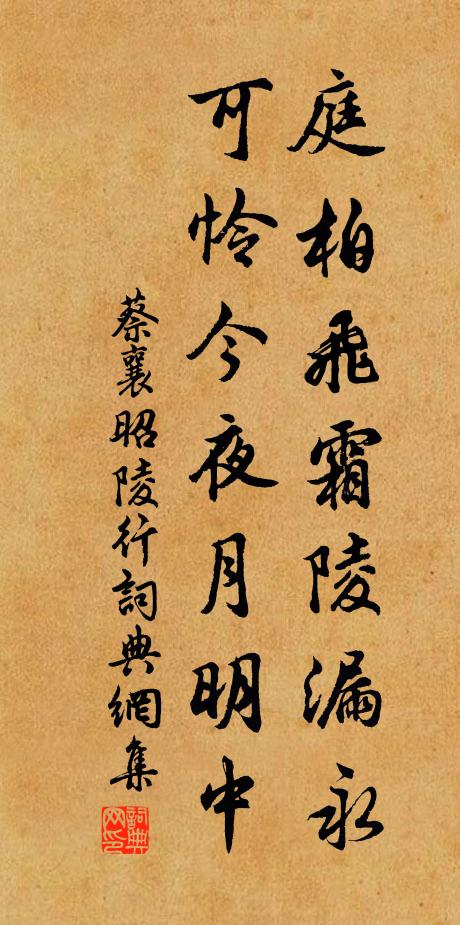 庭柏飛霜陵漏永
可憐今夜月明中
蔡襄昭陵行詞典網集
詞典网印